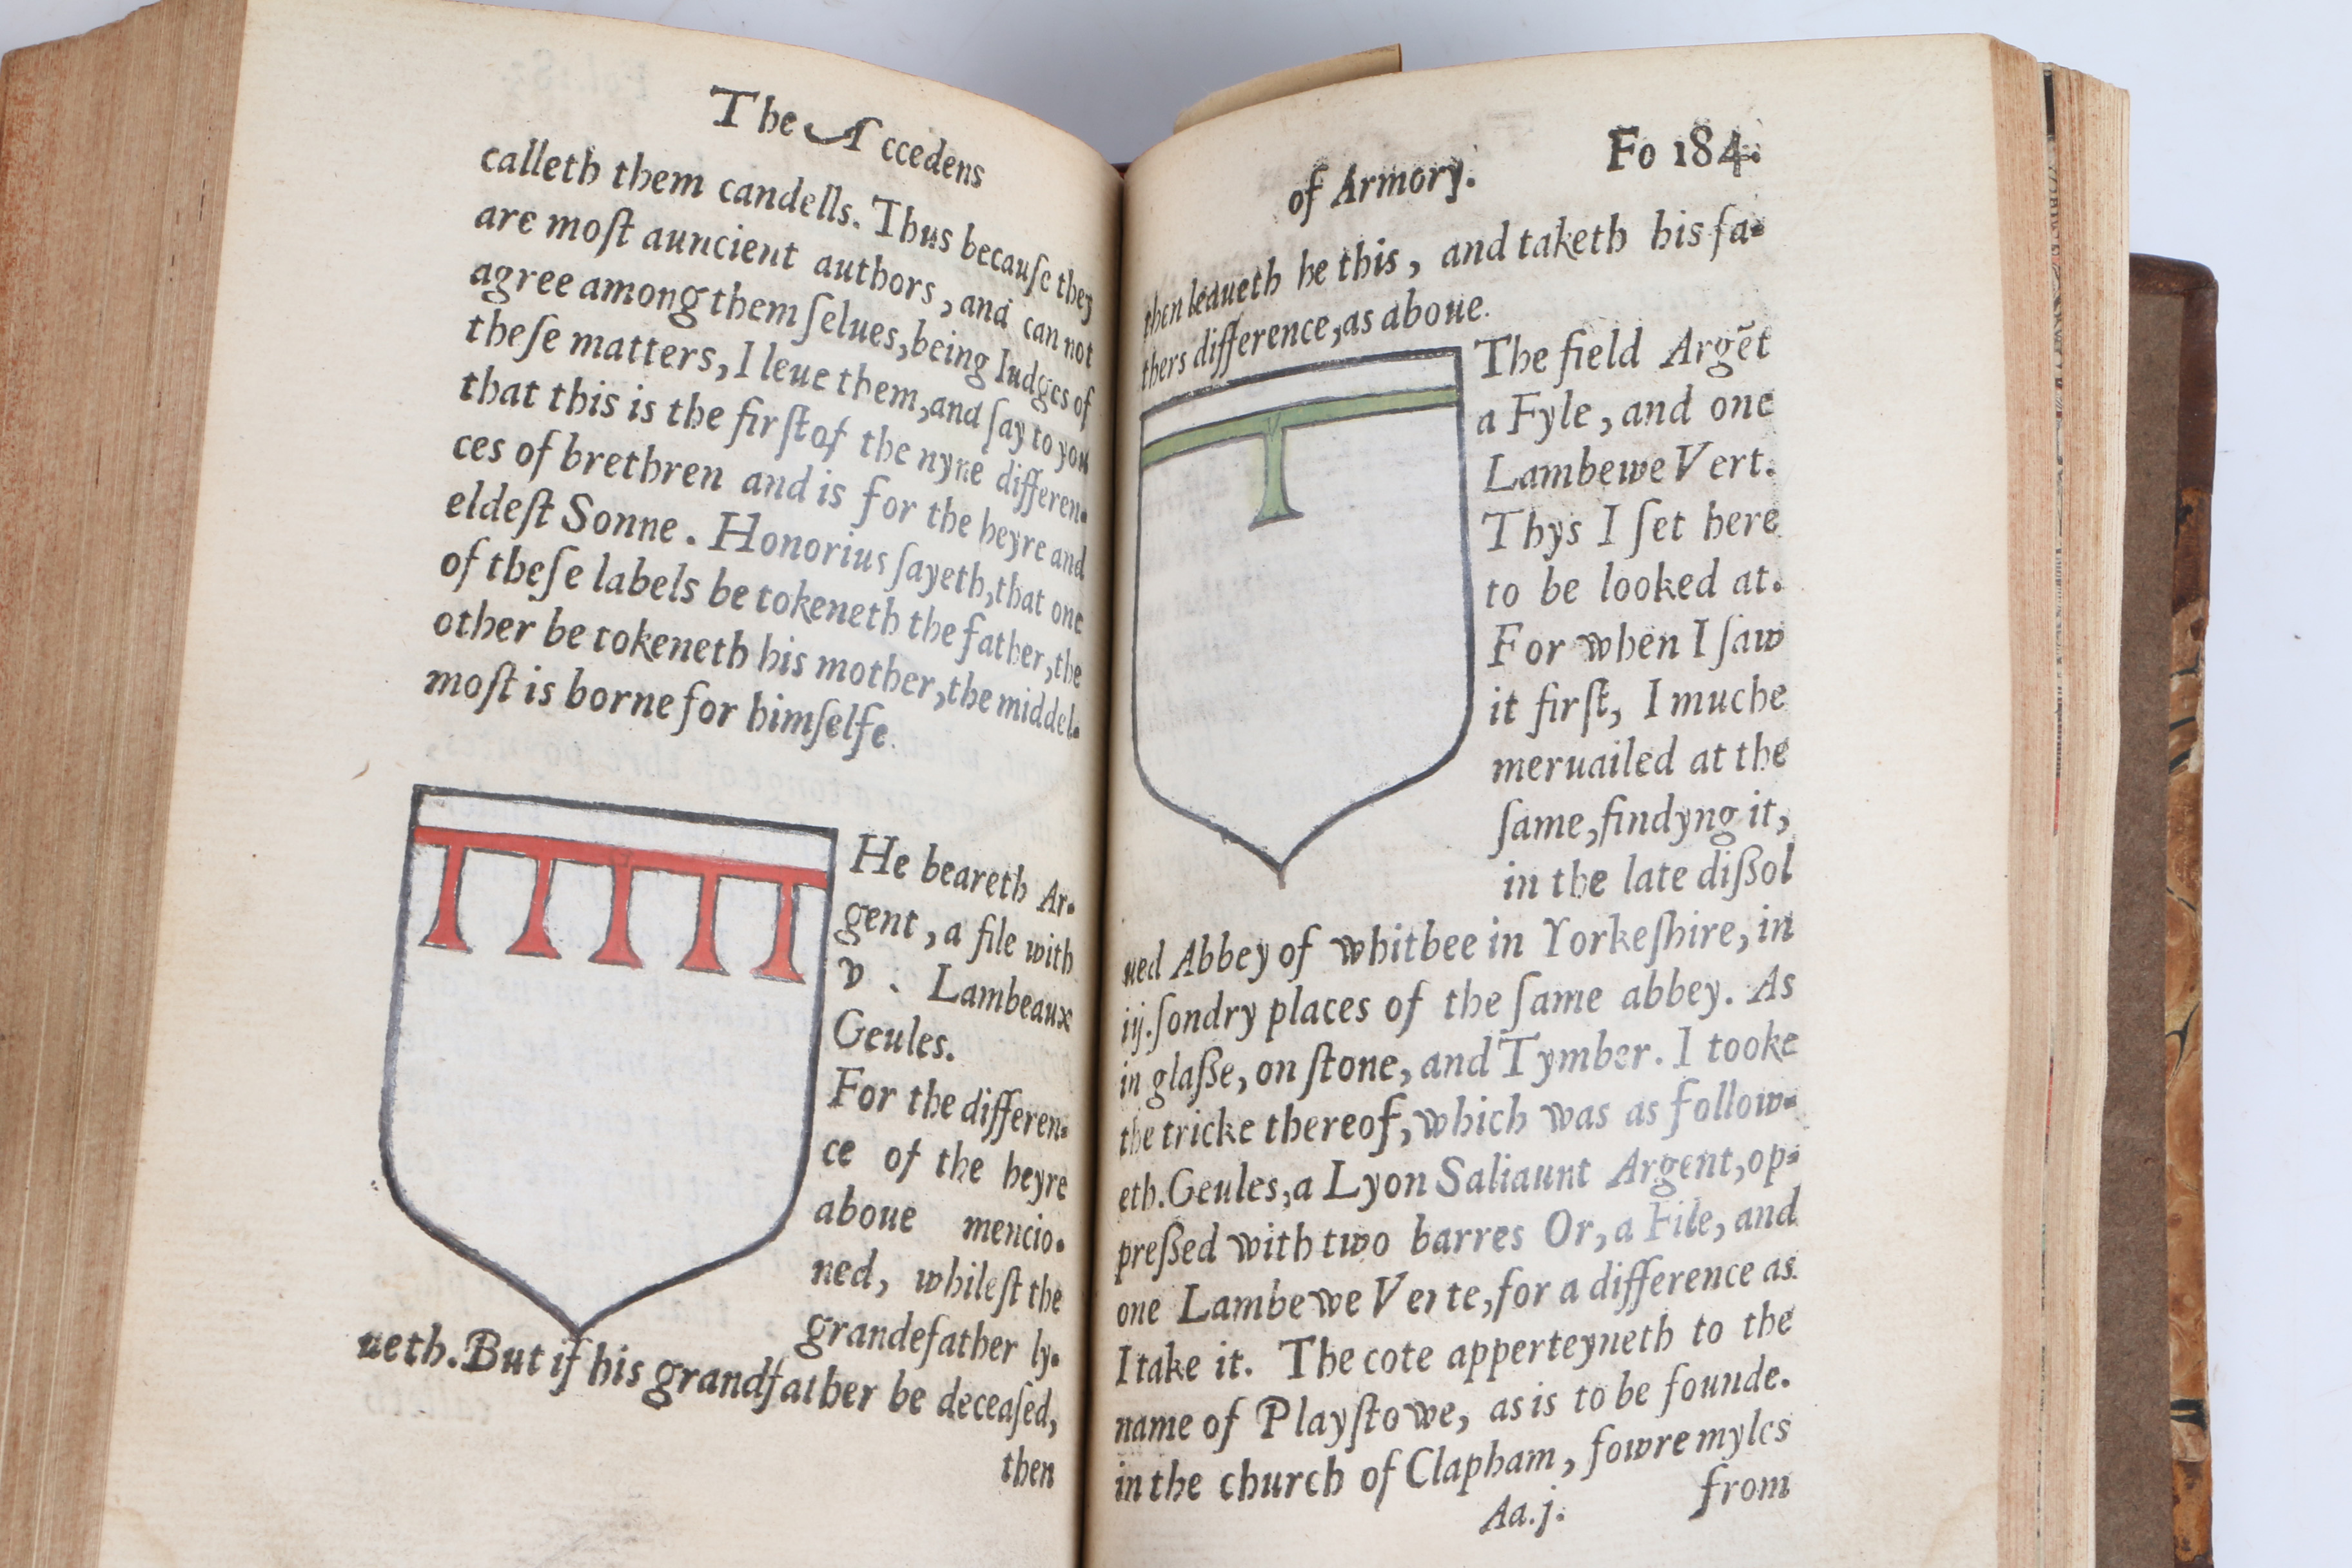 The Accedens
calleth them candells. Thus because they
are moſt auncient authors, and can not
agree among them ſelues, being Iudges of
theſe matters, I leue them, and ſay to you
that this is the firſt of the nyne differen-
ces of brethren and is for the heyre and
eldeſt Sonne. Honorius ſayeth, that one
of theſe labels be tokeneth the father, the
other be tokeneth his mother, the middel-
moſt is borne for himſelfe.
He beareth Ar-
gent, a file with
v. Lambeaux
Geules.
For the differen-
ce of the heyre
aboue mencio-
ned, whileſt the
grandefather ly-
ueth. But if his grandfather be deceaſed,
then
of Armory. Fo 184.
then leaueth he this, and taketh his fa-
thers difference, as aboue.
The field Argẽt
a Fyle, and one
Lambewe Vert.
Thys I ſet here
to be looked at.
For when I ſaw
it firſt, I muche
meruailed at the
ſame, findyng it,
in the late diſſol
ued Abbey of whitbee in Yorkeſhire, in
iij. ſondry places of the ſame abbey. As
in glaſſe, on ſtone, and Tymber. I tooke
the tricke thereof, which was as follow-
eth. Geules, a Lyon Saliaunt Argent, op-
preſſed with two barres Or, a File, and
one Lambewe Verte, for a difference as
I take it. The cote apperteyneth to the
name of Playſtowe, as is to be founde.
in the church of Clapham, fowre myles
Aa.j. from